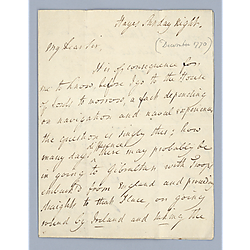 Hayes Sunday Night.
(December 1770)
My Dear Sir,
It is of consequence for
me to know, before I go to the House
of Lords to morrow, a fact depending
on navigation and naval experience
the question is singly this; how
many days difference there may probably be
in going to Gibraltar with Troops
embark'd from England and proceeding
straight to that Place, or going
round by Ireland and taking the